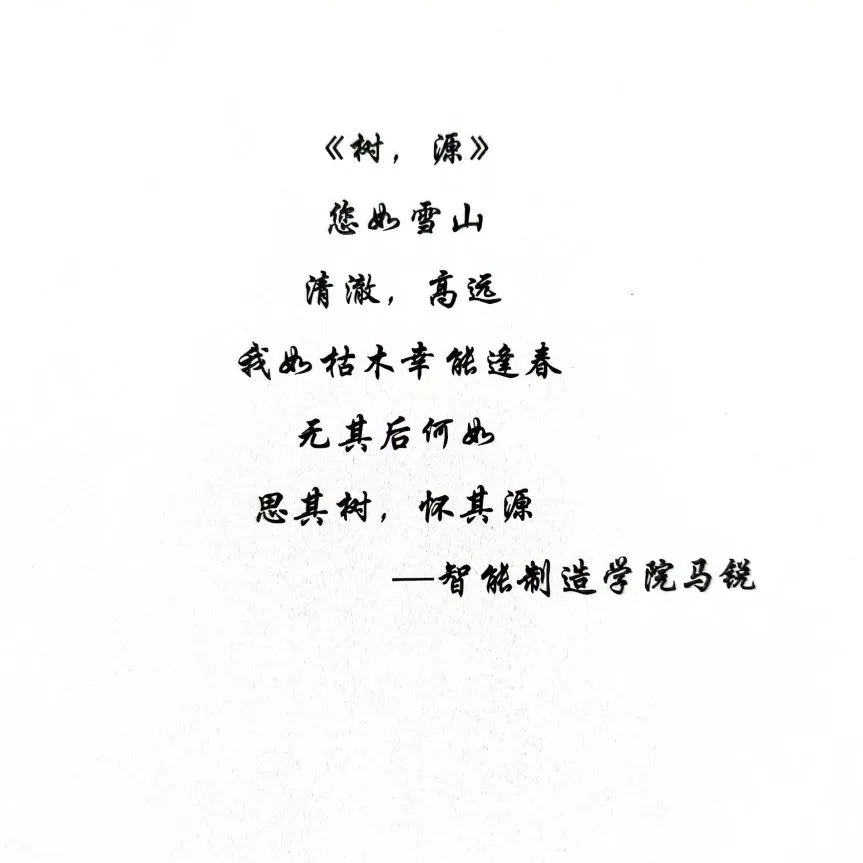 《树，源》
您如雪山
清澈，高远
我如枯木幸能逢春
无其后何如
思其树，怀其源
—智能制造学院马锐